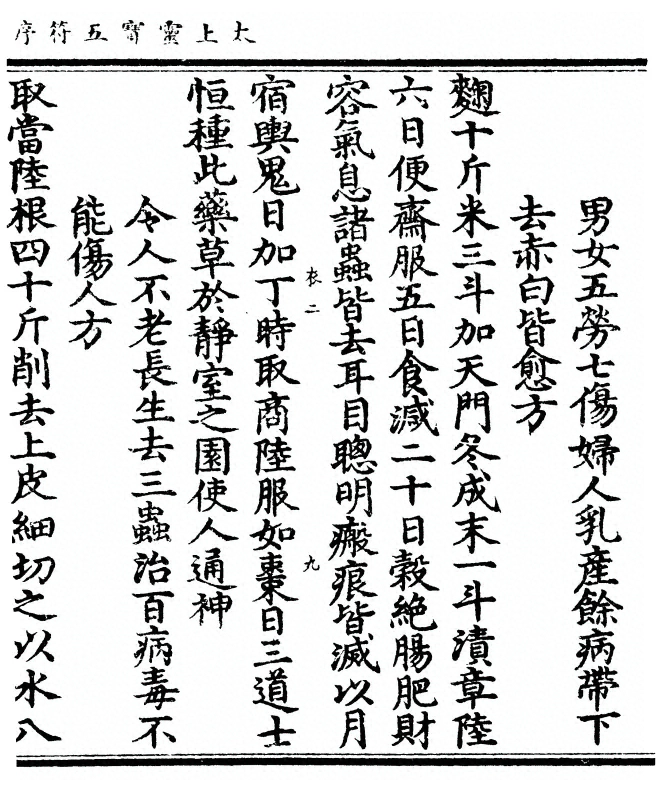 太上靈寶五符序
男女五勞七傷婦人乳產餘病帶下
去赤白皆愈方
麴十斤米三斗加天門冬成末一斗漬章陸
六日便齋服五日食減二十日穀絶腸肥財
容氣息諸蟲皆去耳目聰明瘢痕皆滅以月
衣二
九
宿輿鬼日加丁時取商陸服如棗日三道士
恒種此藥草於靜室之園使人通神
令人不老長生去三蟲治百病毒不
能傷人方
取當陸根四十斤削去上皮細切之以水八